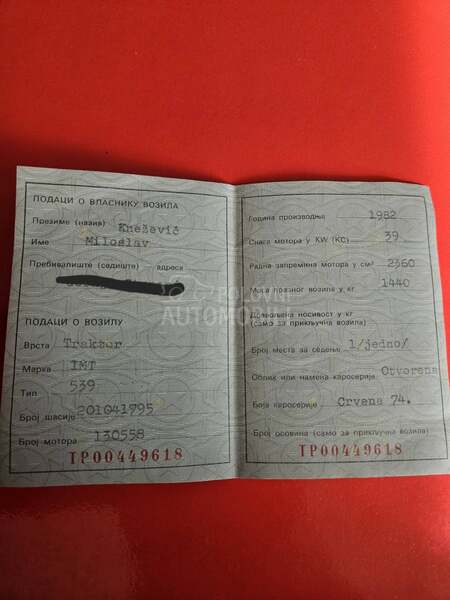 ПОДАЦИ О ВЛАСНИКУ ВОЗИЛА
Презиме (назив) Knežević
Име Miloslav
Пребивалиште (седиште) адреса
ПОДАЦИ О ВОЗИЛУ
Врста Traktor
Марка IMT
Тип 539
Број шасије 201041795
Број мотора 130558
TP00449618
Година производње 1982
Снага мотора у KW (КС) 39
Радна запремина мотора у cm³ 2360
Маса празног возила у кг 1440
Дозвољена носивост у кг
(само за прикључна возила)
Број места за седење 1/jedno/
Облик или намена каросерије Otvorena
Боја каросерије Crvena 74.
Број осовина (само за прикључна возила)
TP00449618
POLOVNI
AUTOMOBILI